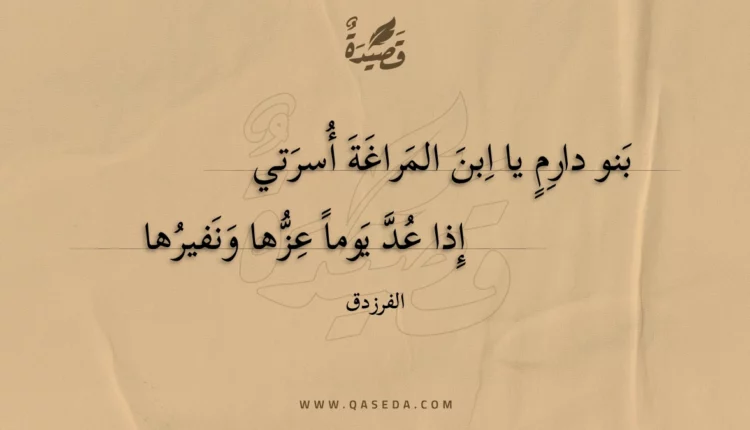 قَصِيدَةٌ
بَنو دارِمٍ يا اِبنَ المَراغَةَ أُسرَتي
إِذا عُدَّ يَوماً عِزُّها وَنَفيرُها
الفرزدق
WWW.QASEDA.COM